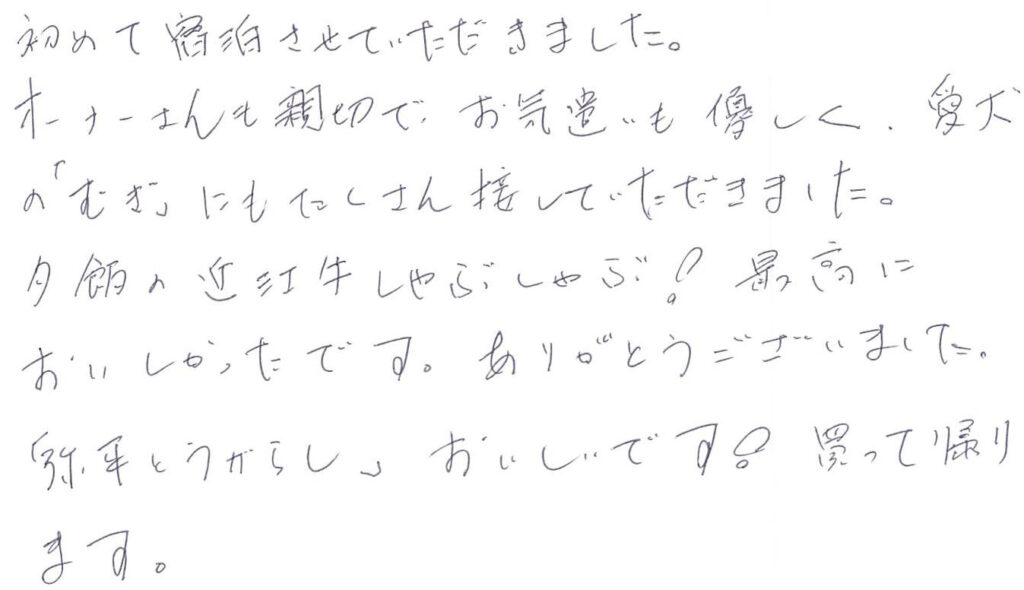 初めて宿泊させていただきました。
オーナーさんも親切で、お気遣いも優しく、愛犬
の「むぎ」にもたくさん接していただきました。
夕飯の近江牛しゃぶしゃぶ！最高に
おいしかったです。ありがとうございました。
「弥平とうがらし」おいしいです！買って帰り
ます。